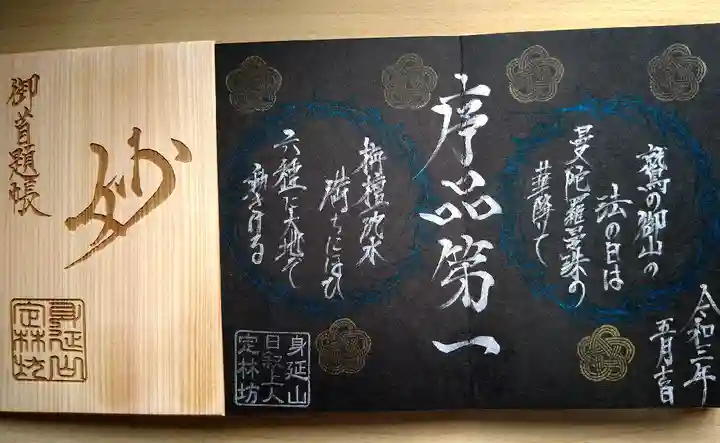 御首題帳
妙
身延山
定林坊
令和三年
五月吉日
鷲の御山の
法の日は
曼陀羅曼珠の
華降りて
序品第一
栴檀沈水
満ちにほひ
六種に大地
動きける
身延山
上人
定林坊